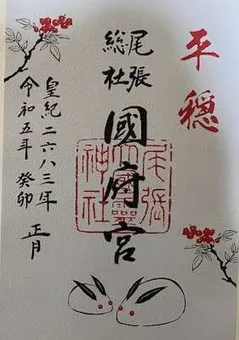 平穏
尾張
総社
國府宮
尾張
大國霊
神社
皇紀二六八三年
令和五年 癸卯 正月